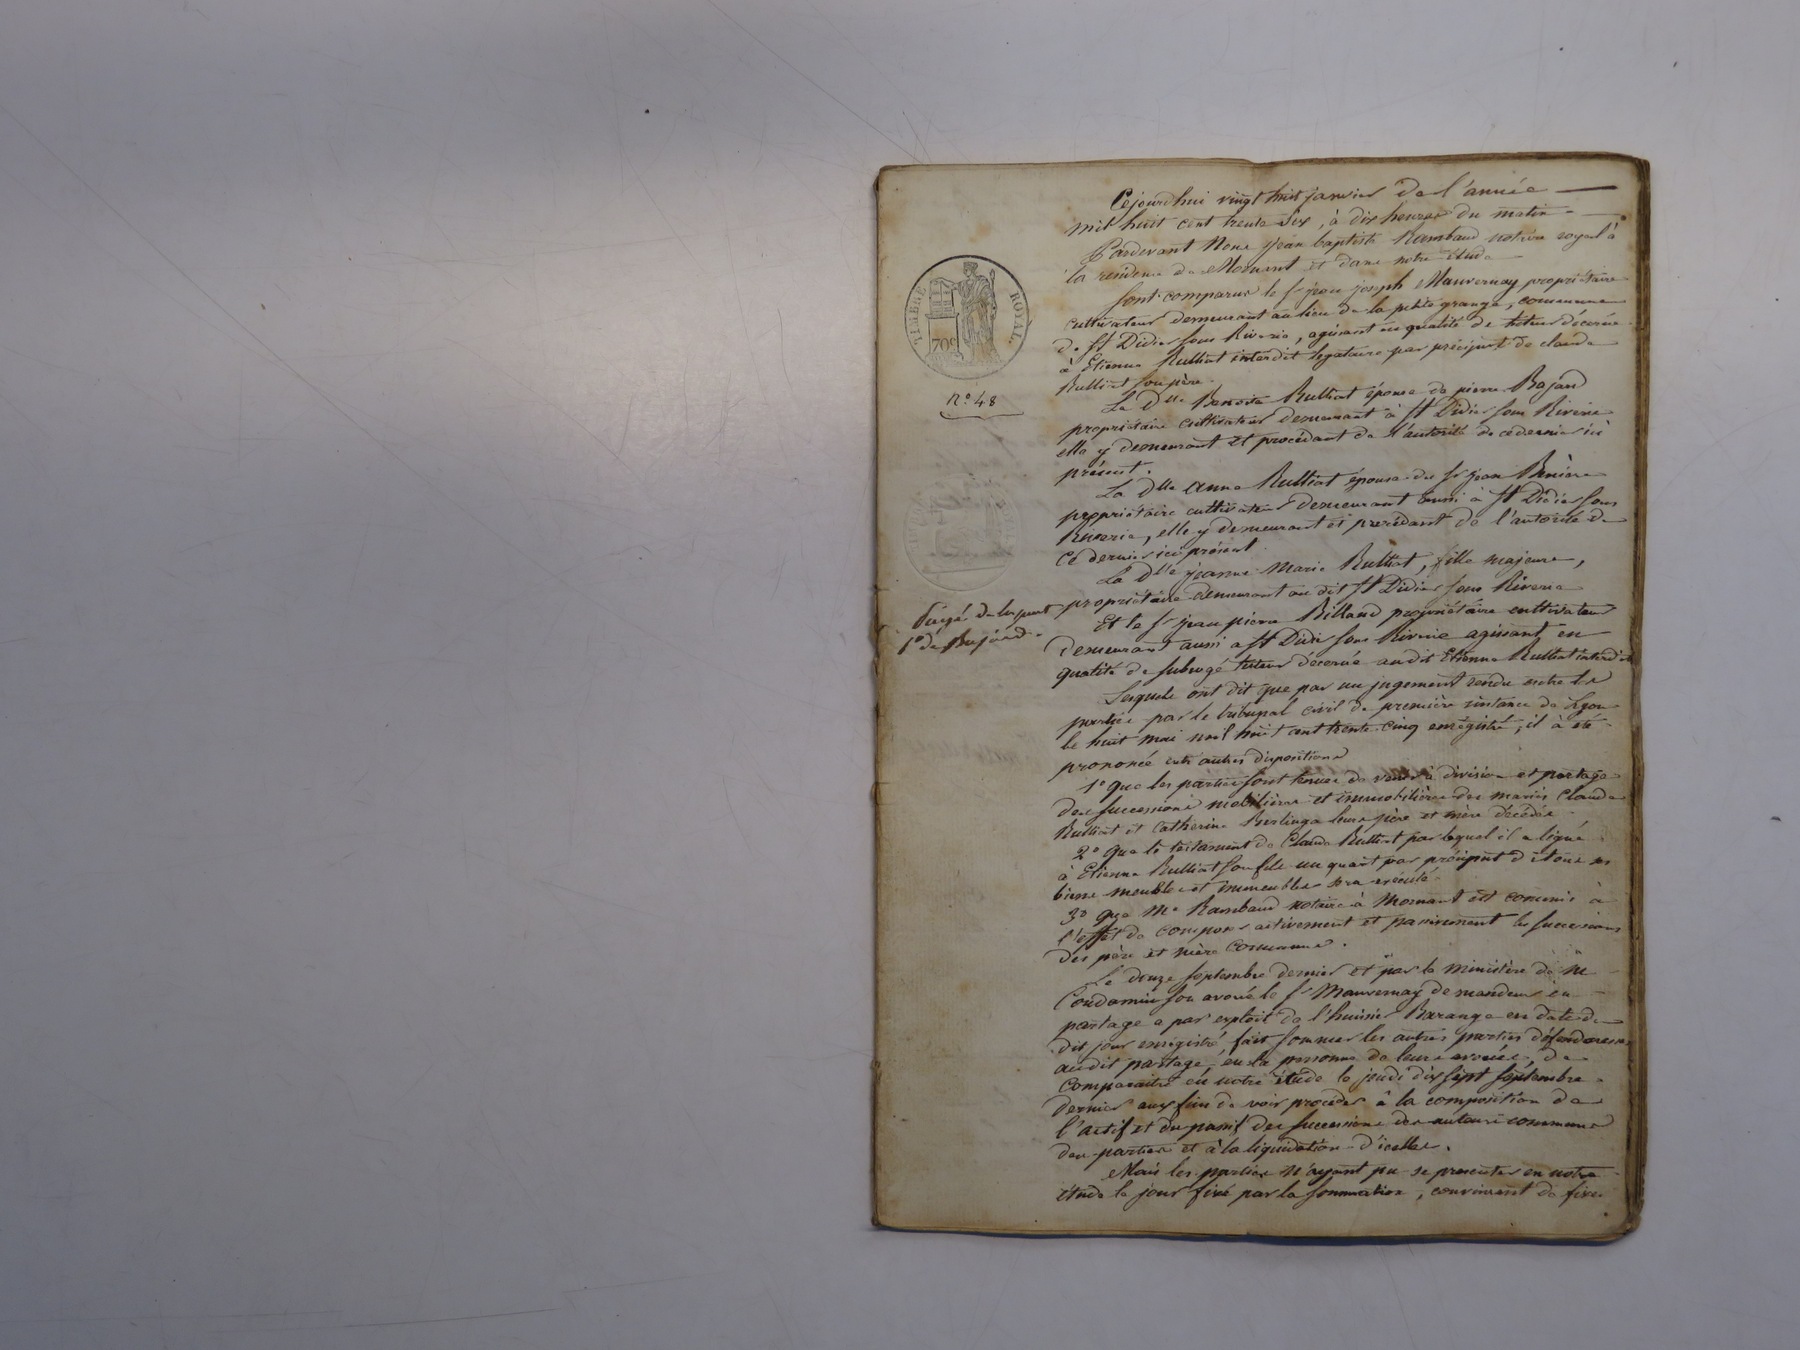 Cejourd'hui vingt huit janvier de l'année
mil huit cent trente six, à dix heures du matin
Pardevant Nous jean baptiste Rambaud notaire royal à
la residence de Mornant et dans notre étude
Sont comparus le Sr jean joseph Mauvernay propriétaire
cultivateur demeurant au lieu de la petite grange, commune
de St Didier sous Riverie, agissant en qualité de tuteur décerné
à Etienne Rulliat interdit légataire par préciput de claude
Rulliat son père.
La Dlle Benoite Rulliat épouse de pierre Bajard
propriétaire cultivateur demeurant à St Didier sous Riverie
elle y demeurant et procédant de l'autorité de ce dernier ici
présent.
La Dlle anne Rulliat épouse du Sr jean
propriétaire cultivateur demeurant aussi à St Didier sous
Riverie, elle y demeurant et procédant de l'autorité de
ce dernier ici présent
La Dlle jeanne Marie Rulliat, fille majeure,
propriétaire demeurant au dit St Didier sous Riverie
Et le Sr jean pierre Billand propriétaire cultivateur
demeurant aussi a St Didier sous Riverie agissant en
qualité de subrogé tuteur décerné audit Etienne Rulliat interdit
Lesquels ont dit que par un jugement rendu entre les
parties par le tribunal civil de première instance de Lyon
le huit mai mil huit cent trente cinq enregistré, il à été
prononcé entr'autres dispositions
1o que les parties sont tenues de venir à division et partage
des successions mobilières et immobilières des mariés Claude
Rulliat et Catherine Berlinga leurs père et mère décédés
2o Que le testament de Claude Rulliat par lequel il a légué
à Etienne Rulliat son fils un quart par préciput de tous ses
biens meubles et immeubles sera exécuté
3o que Me Rambaud notaire à Mornant est commis à
l'effet de composer activement et passivement les successions
des père et mère communs.
Le douze septembre dernier et par le ministère de Me
Condamin son avoué le Sr Mauvernay demandeur en
partage a par exploit de l'huissier Barange en date du
dit jour enregistré, fait sommer les autres parties défenderesses
audit partage, en la personne de leurs avoués, de
comparaitre en notre étude le jeudi dix sept septembre
dernier aux fins de voir procéder à la composition de
l'actif et du passif des successions des auteurs communs
des parties et à la liquidation d'icelles.
Mais les parties n'ayant pu se presenter en notre
étude le jour fixé par la sommation, convinrent de fixer
TIMBRE ROYAL.
70c
No 48